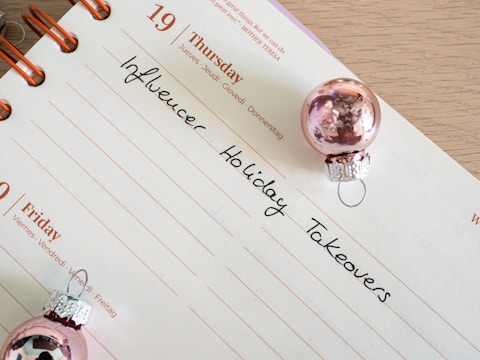 great things. But we can do
great love." -MOTHER TERESA
19
Thursday
Jueves · Jeudi · Giovedì · Donnerstag
Influencer Holiday Takeovers
Friday
Viernes · Vendredi · Venerdì · Freitag